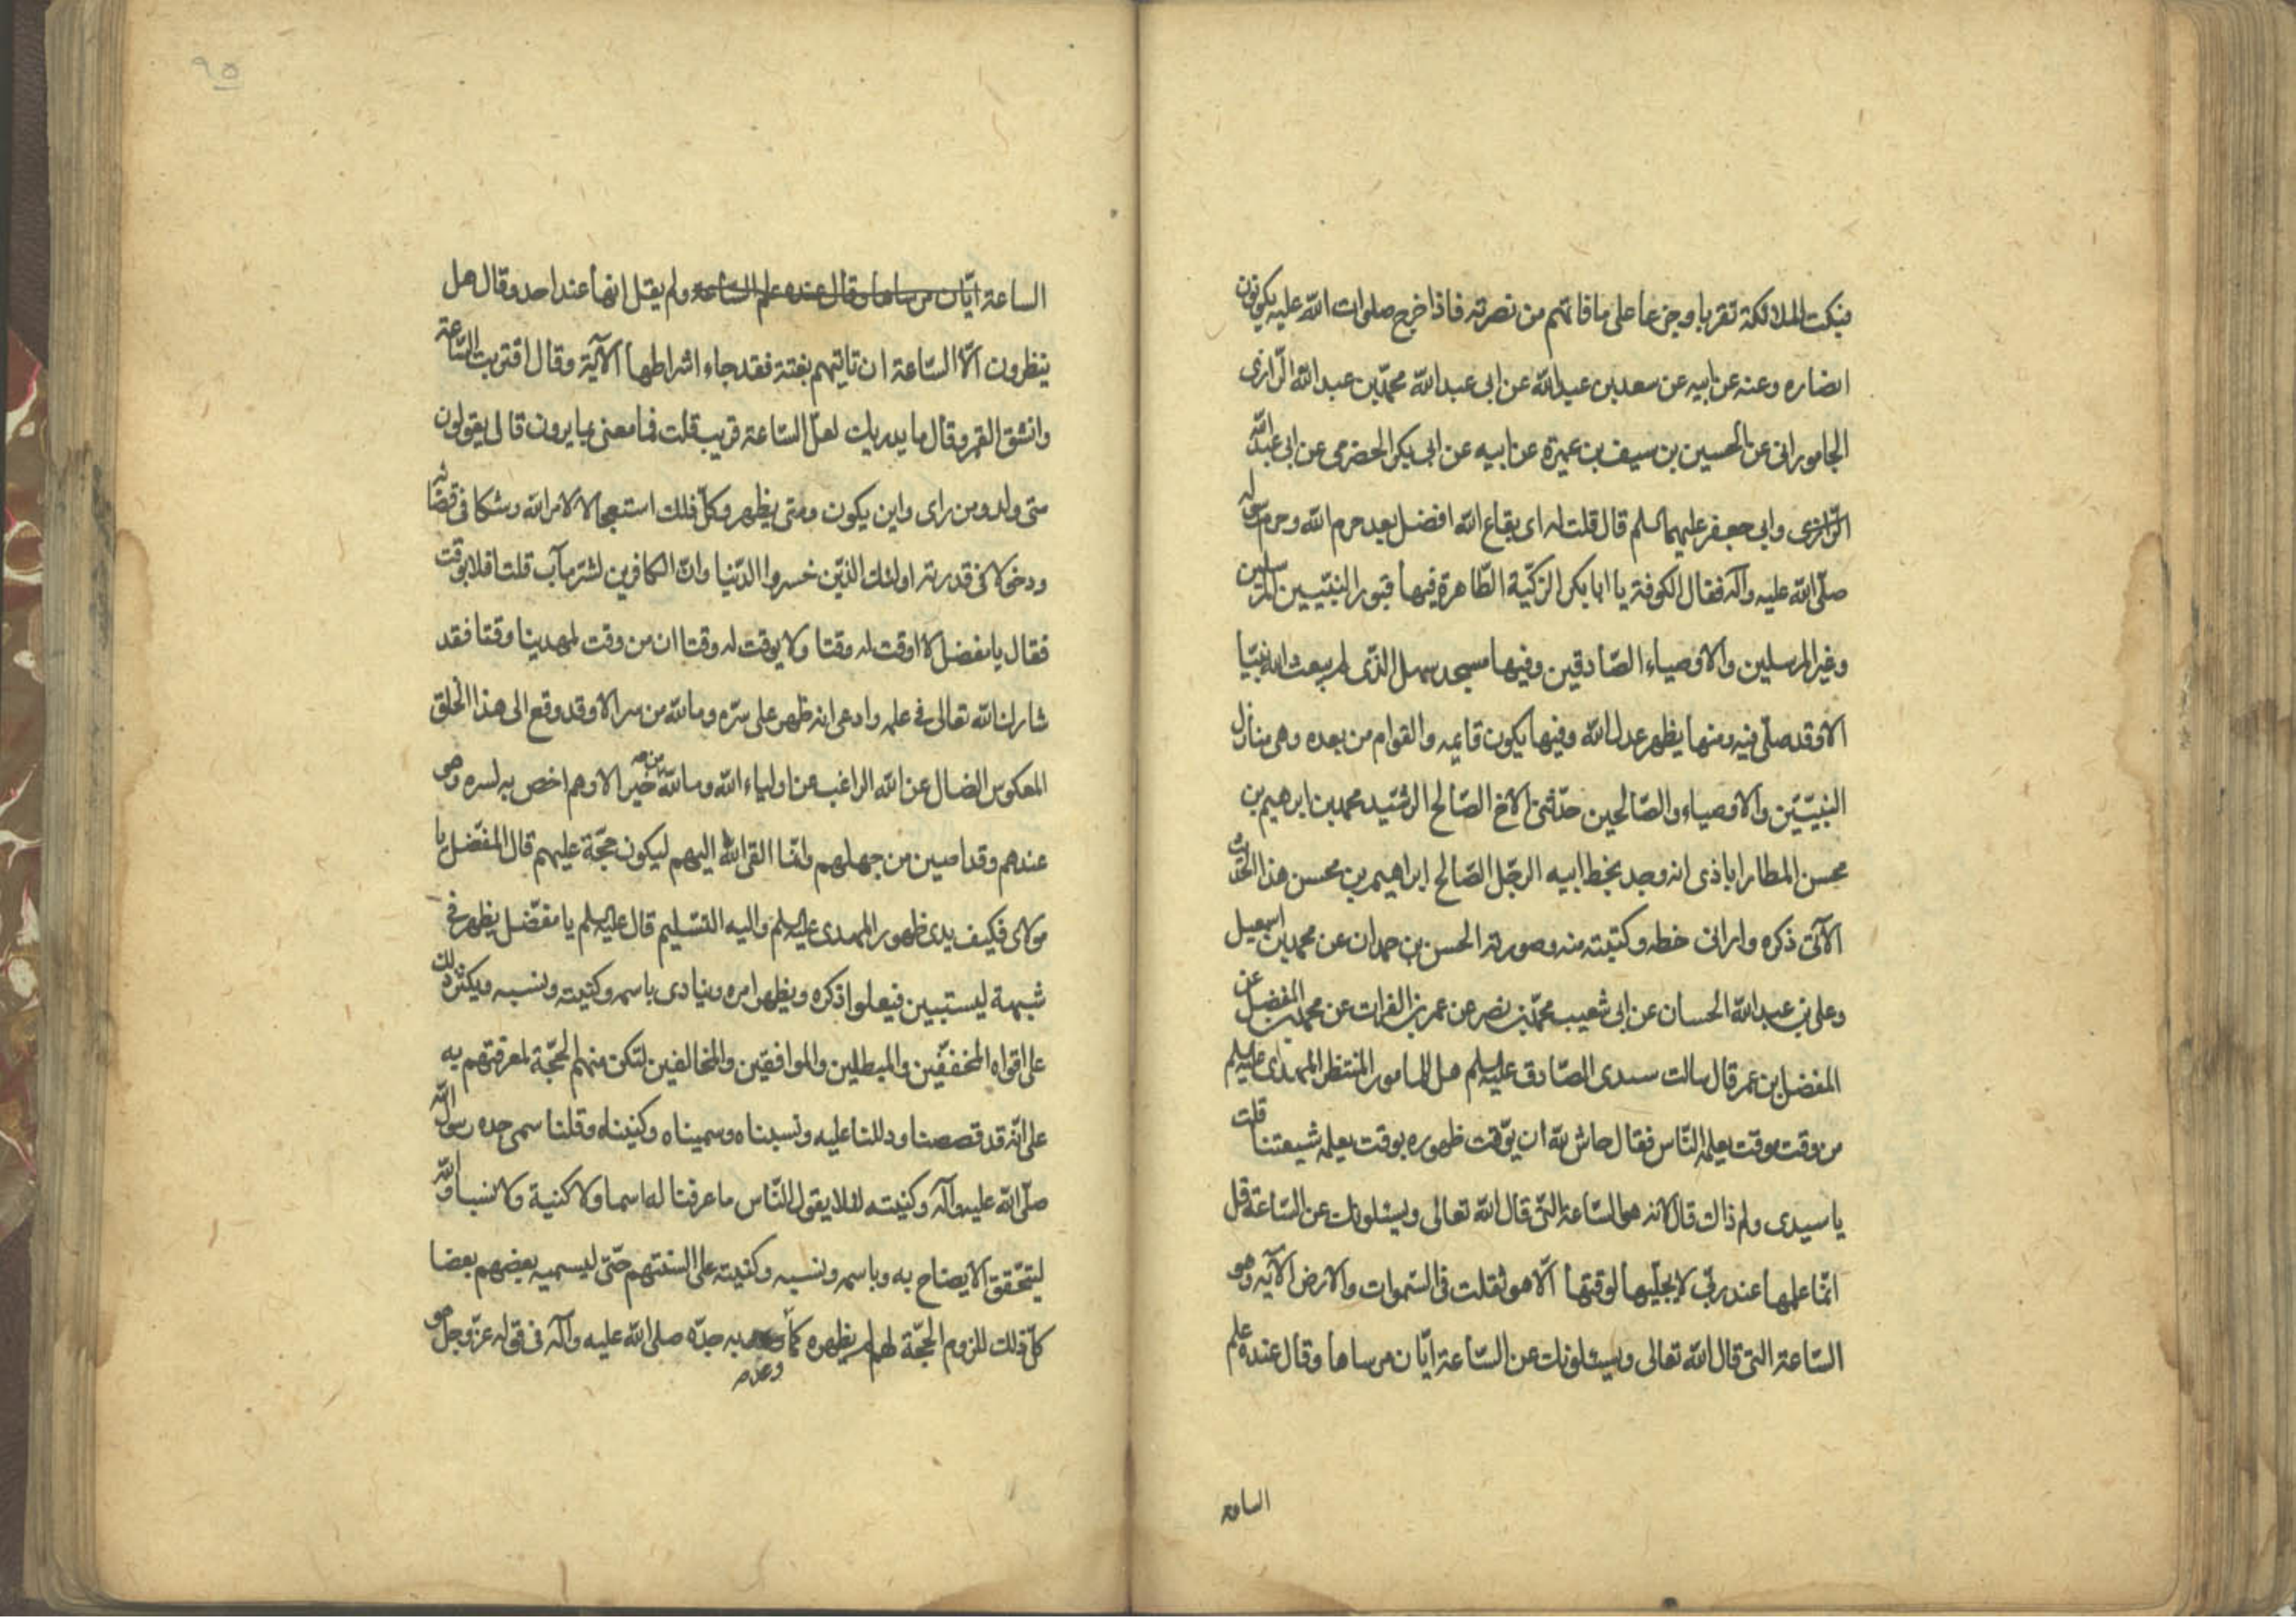 فبكت الملائكة تقربا وجزعا على ما فاتهم من نصرته فاذا خرج صلوات الله عليه يكونون
انصاره وعنه عن ابيه عن سعد بن عبد الله عن ابى عبد الله محمد بن عبد الله الرازى
الجامورانى عن الحسين بن سيف بن عميرة عن ابيه عن ابى بكر الحضرمى عن ابى عبد الله
الرازى وابى جعفر عليهما السلم قال قلت له اى بقاع الله افضل بعد حرم الله وحرم رسوله
صلى الله عليه وآله فقال الكوفة يا ابا بكر الزكية الطاهرة فيها قبور النبيين المرسلين
وغير المرسلين والاوصياء الصادقين وفيها مسجد سهل الذى لم يبعث الله نبيا
الا وقد صلى فيه ومنها يظهر عدل الله وفيها يكون قايمه والقوام من بعده وهى منازل
النبيين والاوصياء والصالحين حدثنى الاخ الصالح الرشيد محمد بن ابرهيم بن
محسن المطارابادى انه وجد بخط ابيه الرجل الصالح ابراهيم بن محسن هذا الحديث
الآتى ذكره وارانى خطه وكتبته منه وصورته الحسن بن حمدان عن محمد بن اسمعيل
وعلى بن عبد الله الحسان عن ابى شعيب محمد بن نصر عن عمر بن الفرات عن محمد بن المفضل عن
المفضل بن عمر قال سالت سيدى الصادق عليه السلم هل للمامور المنتظر المهدى عليه السلم
من وقت موقت يعلمه الناس فقال حاش لله ان يوقت ظهوره بوقت يعلمه شيعتنا قلت
يا سيدى ولم ذاك قال لانه هو الساعة التى قال الله تعالى ويسئلونك عن الساعة قل
انما علمها عند ربى لا يجليها لوقتها الا هو ثقلت فى السموات والارض الآيه وهو
الساعة التى قال الله تعالى ويسئلونك عن الساعة ايان مرساها وقال عنده علم
الساعة
٩٥
الساعة ايان مرساها وقال عنده علم الساعة ولم يقل انها عند احد وقال هل
ينظرون الا الساعة ان تاتيهم بغتة فقد جاء اشراطها الآية وقال اقتربت الساعة
وانشق القمر وقال ما يدريك لعل الساعة قريب قلت فما معنى يمارون قال يقولون
متى ولد ومن راى واين يكون ومتى يظهر وكل ذلك استعجالا لامر الله وشكا فى قضائه
ودخولا فى قدرته اولئك الذين خسروا الدنيا وان للكافرين لشر مآب قلت افلا يوقت
فقال يا مفضل لا اوقت له وقتا ولا يوقت له وقتا ان من وقت لمهدينا وقتا فقد
شارك الله تعالى فى علمه وادعى انه ظهر على سره وما لله من سر الا وقد وقع الى هذا الخلق
المعكوس الضال عن الله الراغب عن اولياء الله وما لله من خير الا وهم اخص به لسره وهو
عندهم وقد اصين من جهلهم وانما القى الله اليهم ليكون حجة عليهم قال المفضل يا
مولاى فكيف يدى ظهور المهدى عليه السلم واليه التسليم قال عليه السلم يا مفضل يظهر فى
شبهة ليستبين فيعلوا ذكره ويظهر امره وينادى باسمه وكنيته ونسبه ويكثر ذلك
على افواه المحفقين والمبطلين والموافقين والمخالفين لتكن منهم الحجة لمعرفتهم به
على انه قد قصصنا ودللنا عليه ونسبناه وسميناه وكنيناه وقلنا سمى جده رسول الله
صلى الله عليه وآله وكنيته لئلا يقول الناس ما عرفنا له اسما ولا كنية ولا نسبا والله
ليتحقق الايضاح به وباسمه ونسبه وكنيته على السنتهم حتى ليسميه بعضهم بعضا
كل ذلك للزوم الحجة لهم ثم يظهره كما وعد به جده صلى الله عليه وآله فى قوله عز وجل هو
وعده